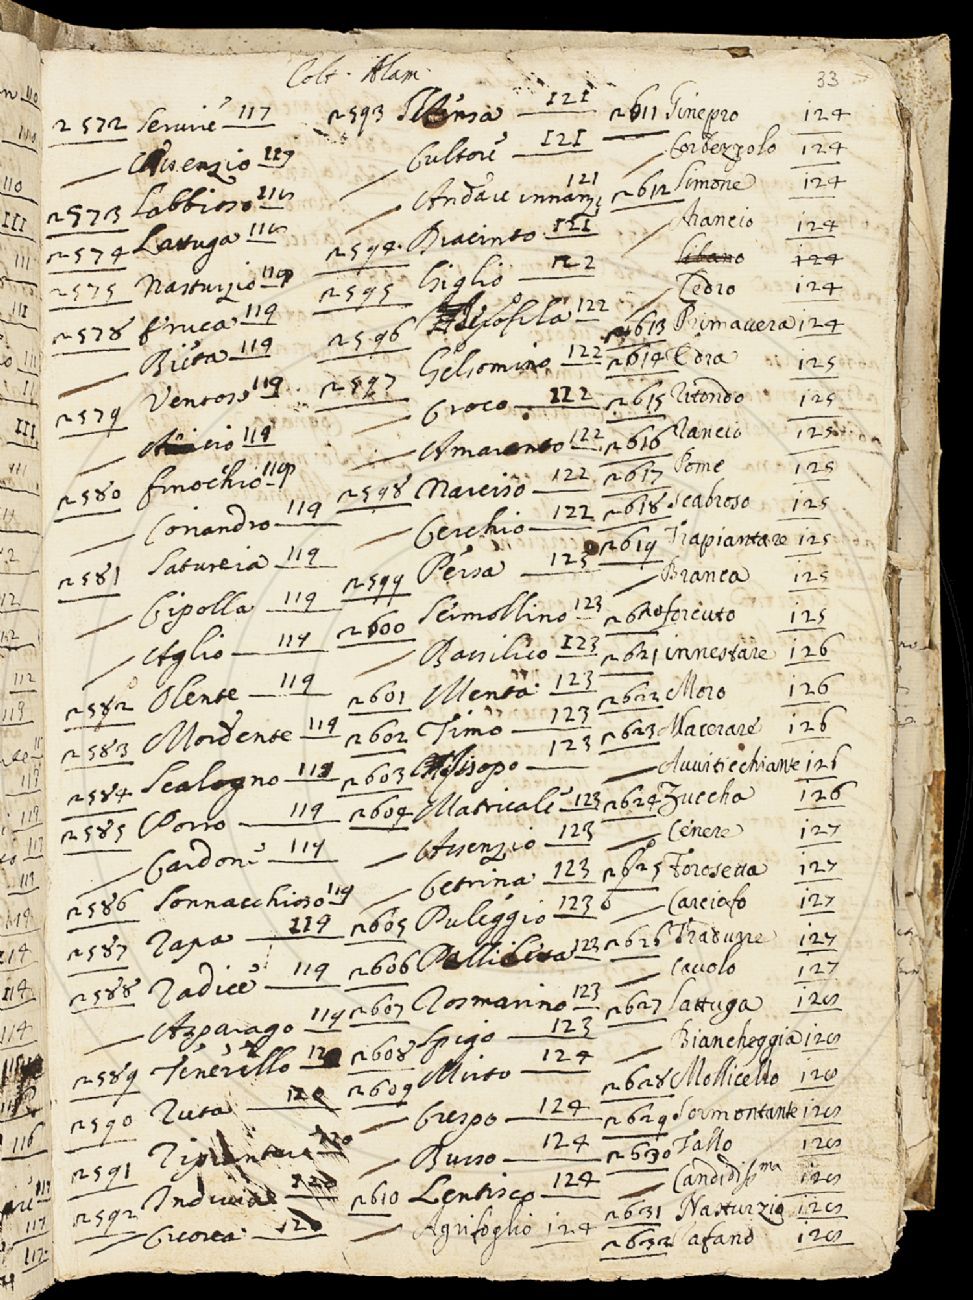 Colt. Alam.
33
2572 Servire 117
— Assenzio 117
2573 Labbroso 118
2574 Lattuga 118
2575 Nasturzio 119
2578 Eruca 119
— Bieta 119
2579 Ventoso 119
— Anicio 119
2580 Finochio 119
— Coriandro 119
2581 Satureia 119
— Cipolla 119
— Aglio 119
2582 Olente 119
2583 Mordente 119
2584 Scalogno 119
2585 Porro 119
— Cardone 119
2586 Sonnacchioso 119
2587 Rapa 119
2588 Radice 119
— Asparago 119
2589 Tenerello 120
2590 Ruta 120
2591 120
2592 Indivia 120
— Cicorea 120
2593 121
— Cultore 121
— Andare innanzi 121
2594 Giacinto 121
2595 Giglio 122
2596 122
2597 Gelsomino 122
— Croco 122
— Amaranto 122
2598 Narciso 122
— Cerchio 122
2599 Persa 123
2600 Sermollino 123
— Bassilico 123
2601 Menta 123
2602 Timo 123
2603 Hisopo 123
2604 Matricale 123
— Assenzio 123
— Cetrina 123
2605 Puleggio 123
2606 123
2607 Rosmarino 123
2608 Spigo 123
2609 Mirto 124
— Crespo 124
— Busso 124
2610 Lentisco 124
— Agrifoglio 124
2611 Ginepro 124
— Corbezzolo 124
2612 Limone 124
— Arancio 124
— Libano 124
— Cedro 124
2613 Primavera 124
2614 Edra 125
2615 Ritondo 125
2616 Rancio 125
2617 Pome 125
2618 Scabroso 125
2619 Trapiantare 125
— Branca 125
2620 Forcuto 125
2621 innestare 126
2622 Moro 126
2623 Macerare 126
— Avviticchiante 126
2624 Zuccha 126
— Cenere 127
2625 Forosetta 127
— Carciofo 127
2626 Tradurre 127
— Cavolo 127
2627 Lattuga 128
— Biancheggia 128
2628 Mollicello 128
2629 Sormontante 128
2630 Tallo 128
— Candidissma 128
2631 Nasturzio 128
2632 Rafano 128